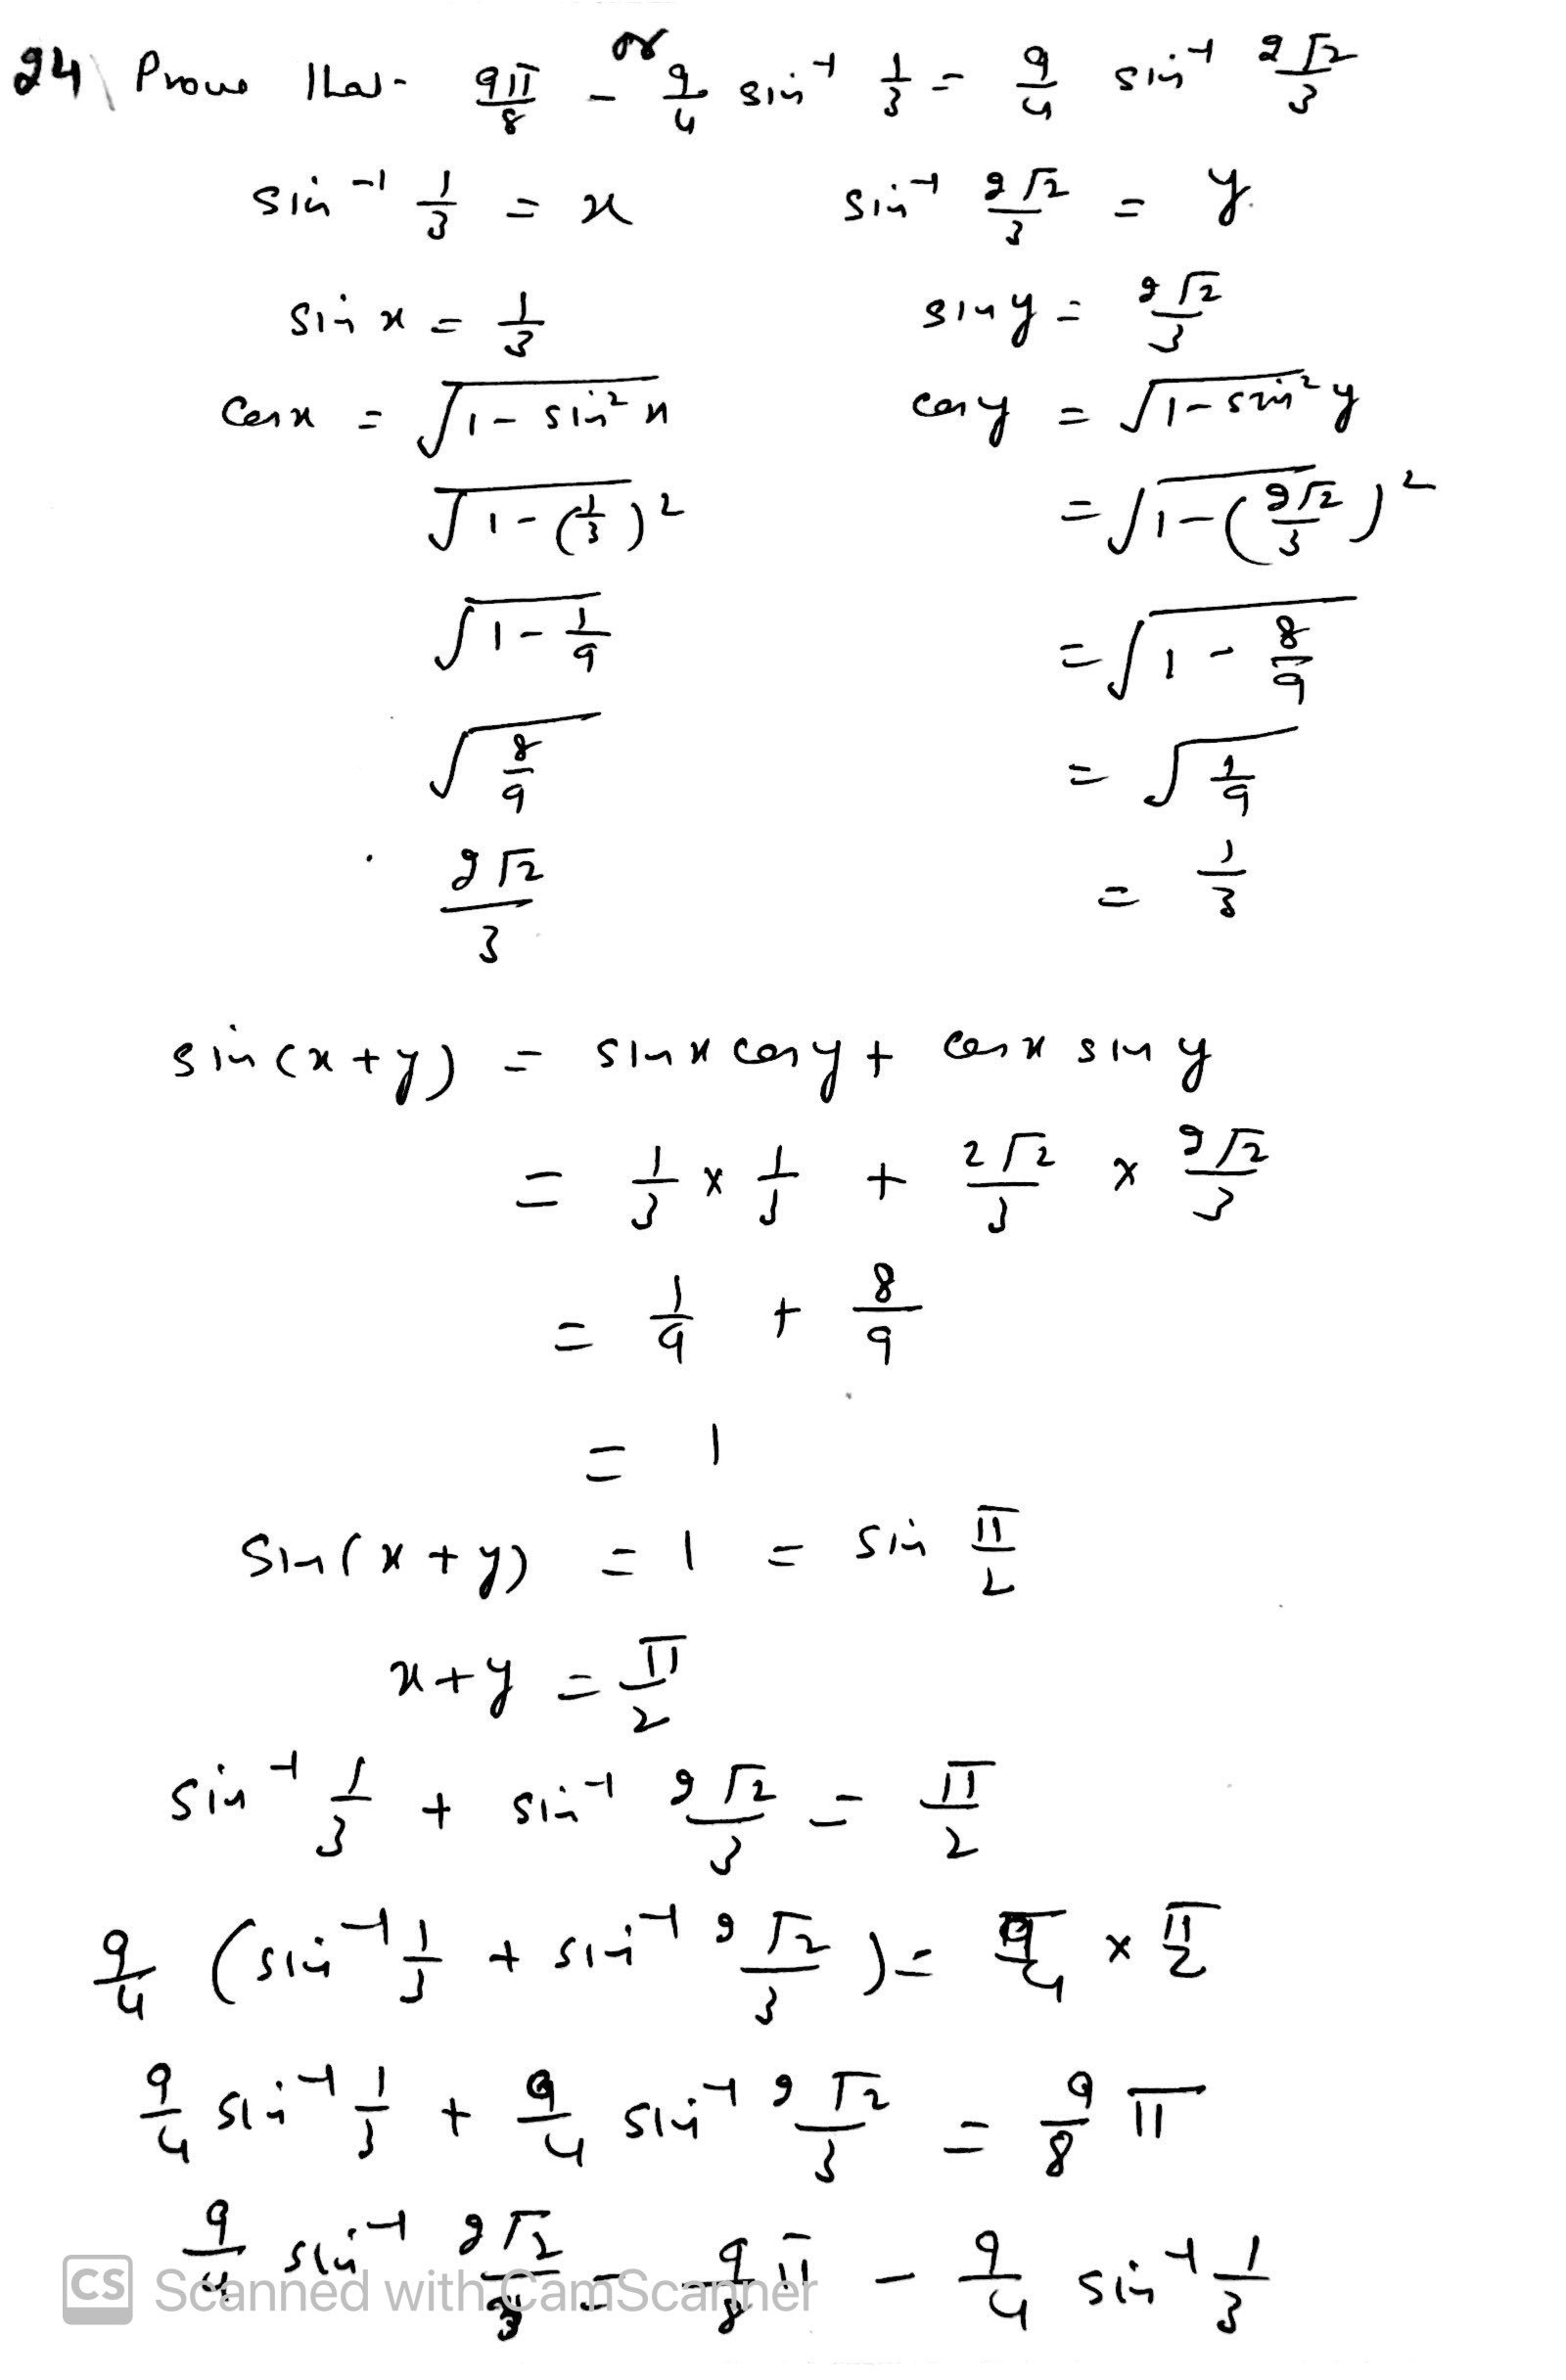 or
24 Prove that 9π/8 - 9/4 sin⁻¹ 1/3 = 9/4 sin⁻¹ 2√2/3
sin⁻¹ 1/3 = x
sin x = 1/3
cos x = √(1 - sin² x)
√(1 - (1/3)²)
√(1 - 1/9)
√(8/9)
2√2/3
sin⁻¹ 2√2/3 = y
sin y = 2√2/3
cos y = √(1 - sin² y)
= √(1 - (2√2/3)²)
= √(1 - 8/9)
= √(1/9)
= 1/3
sin(x + y) = sin x cos y + cos x sin y
= 1/3 × 1/3 + 2√2/3 × 2√2/3
= 1/9 + 8/9
= 1
sin(x + y) = 1 = sin π/2
x + y = π/2
sin⁻¹ 1/3 + sin⁻¹ 2√2/3 = π/2
9/4 (sin⁻¹ 1/3 + sin⁻¹ 2√2/3) = 9/4 × π/2
9/4 sin⁻¹ 1/3 + 9/4 sin⁻¹ 2√2/3 = 9/8 π
9/4 sin⁻¹ 2√2/3 = 9/8 π - 9/4 sin⁻¹ 1/3
CS Scanned with CamScanner